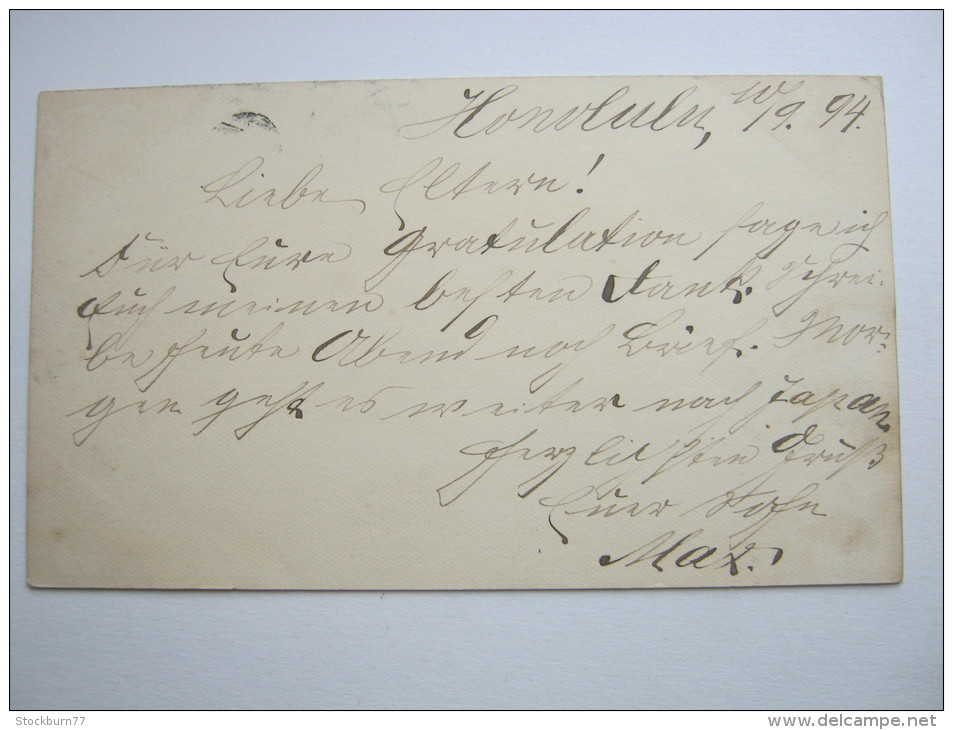 Honolulu, 10/9. 94.
Liebe Eltern!
Für Eure Gratulation sage ich
Euch meinen besten Dank. Schrei-
be heute Abend noch Brief. Mor-
gen geht es weiter nach Japan.
Herzlichsten Gruß
Euer Sohn
Max.
Stockburn77
www.delcampe.net